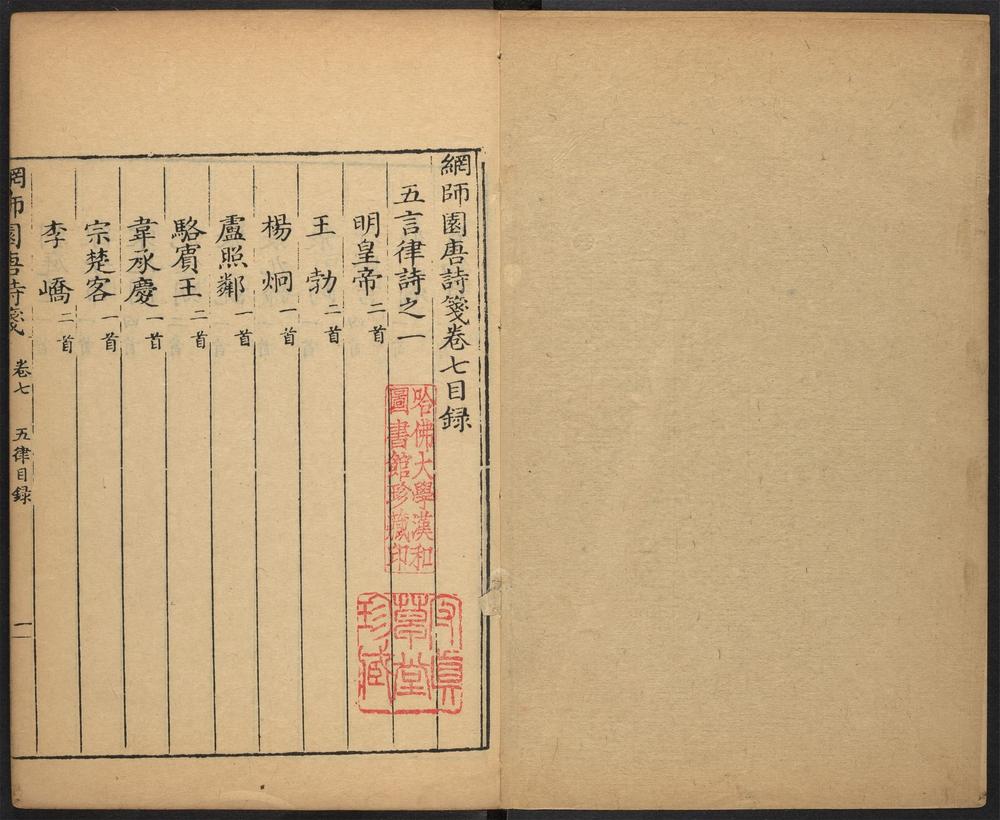 網師園唐詩箋卷七目録
五言律詩之一
明皇帝二首
王勃二首
楊炯一首
盧照鄰一首
駱賓王二首
韋承慶一首
宗楚客一首
李嶠二首
網師園唐詩箋 卷七 五律目録 一
哈佛大學漢和
圖書館珍藏印
守真
草堂
珍藏